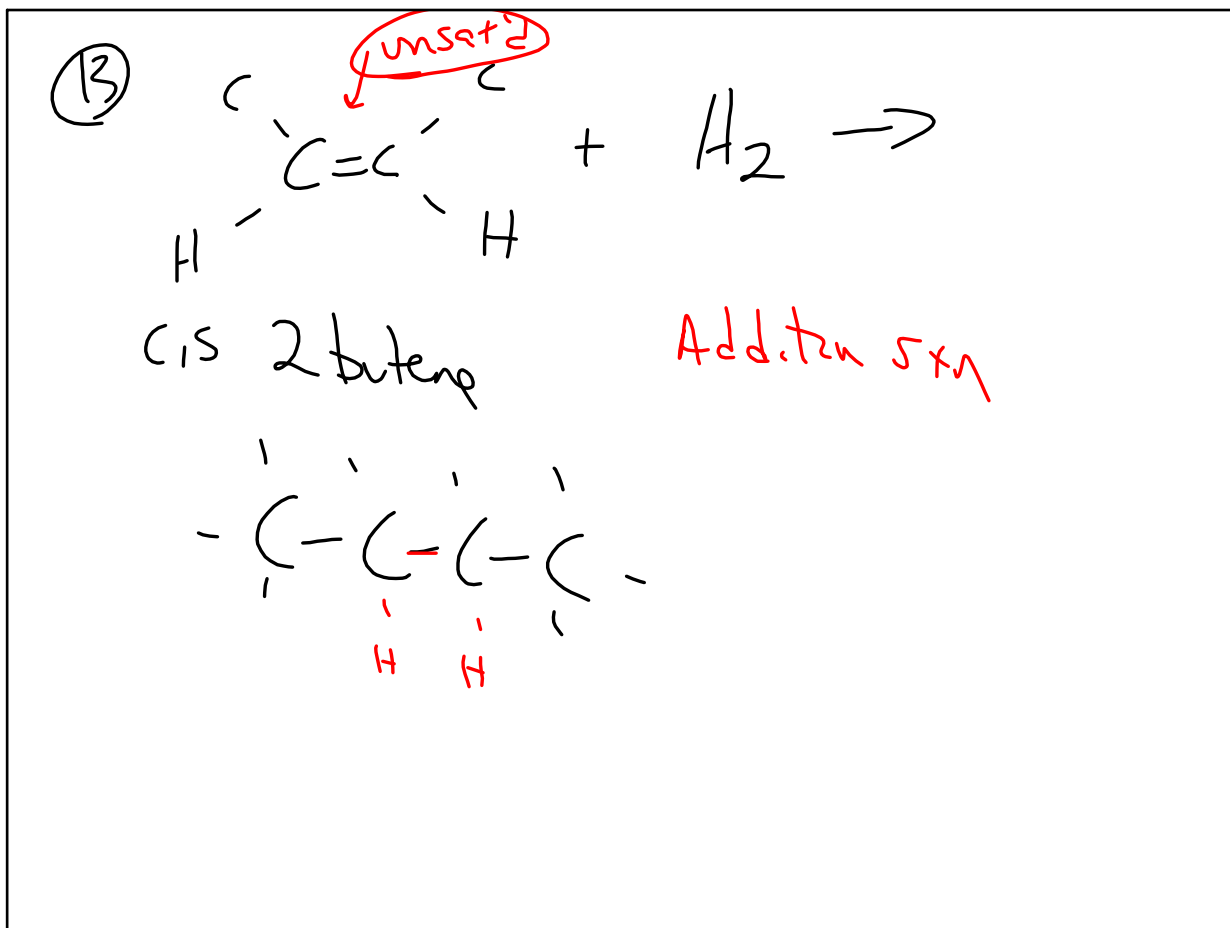 13
unsat'd
C C
C=C + H₂ →
H H
cis 2 butene
Addition rxn
- C - C - C - C -
H H